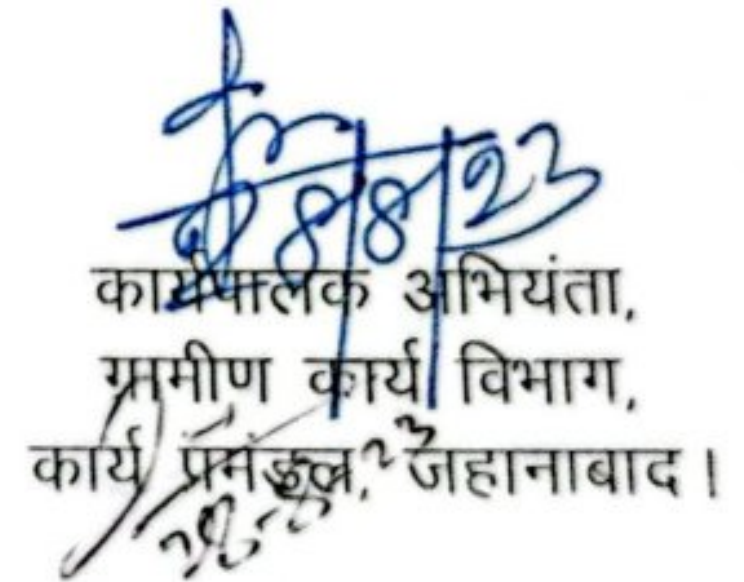 28/8/23
कार्यपालक अभियंता,
ग्रामीण कार्य विभाग,
कार्य प्रमंडल, जहानाबाद।
28-8-23